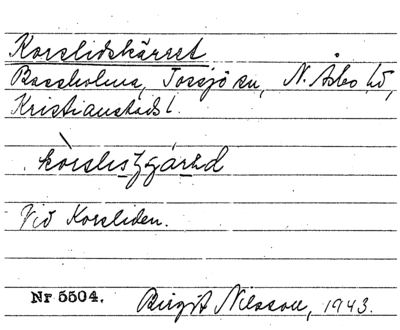 Korslidskärret
Bassholma, Tossjö sn, N. Åsbo hd,
Kristianstads l.
Vid Korsliden.
Nr 5504. Birgit Nilsson, 1943.